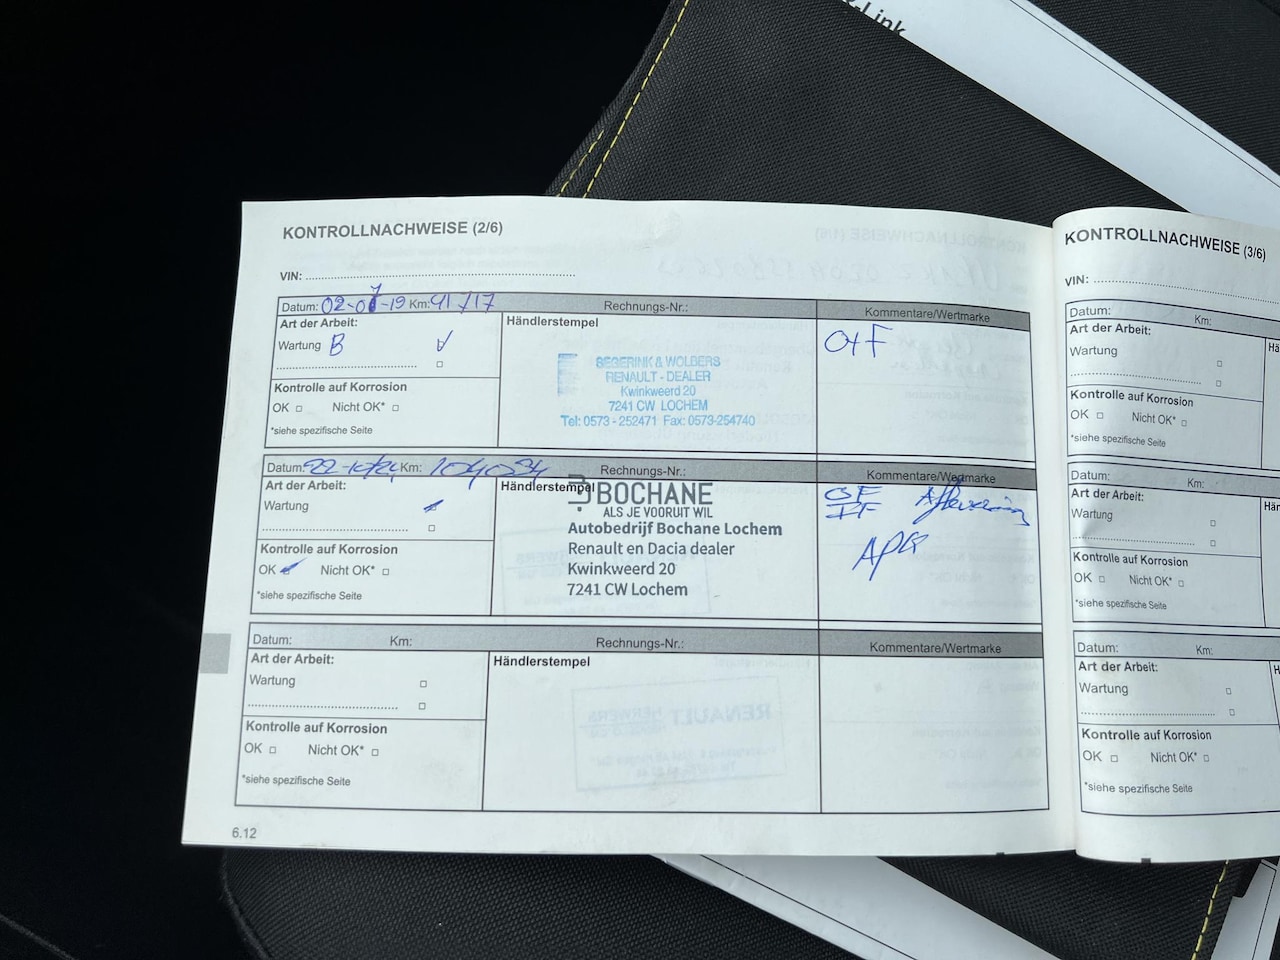 -Link
KONTROLLNACHWEISE (2/6)
VIN:
Datum: 02-07-19 Km: 41117 Rechnungs-Nr.: Kommentare/Wertmarke
Art der Arbeit: Händlerstempel O+F
Wartung B V
SEGERINK & WOLBERS
RENAULT - DEALER
Kwinkweerd 20
7241 CW LOCHEM
Tel: 0573 - 252471 Fax: 0573-254740
Kontrolle auf Korrosion
OK Nicht OK*
*siehe spezifische Seite
Datum: 22-10/24 Km: 104034 Rechnungs-Nr.: Kommentare/Wertmarke
Art der Arbeit: Händlerstempel
Wartung
BOCHANE
ALS JE VOORUIT WIL
Autobedrijf Bochane Lochem
Renault en Dacia dealer
Kwinkweerd 20
7241 CW Lochem
IF
APK
Kontrolle auf Korrosion
OK Nicht OK*
*siehe spezifische Seite
Datum: Km: Rechnungs-Nr.: Kommentare/Wertmarke
Art der Arbeit: Händlerstempel
Wartung
Kontrolle auf Korrosion
OK Nicht OK*
*siehe spezifische Seite
6.12
KONTROLLNACHWEISE (3/6)
VIN:
Datum: Km:
Art der Arbeit:
Wartung
Kontrolle auf Korrosion
OK Nicht OK*
*siehe spezifische Seite
Datum: Km:
Art der Arbeit:
Wartung
Kontrolle auf Korrosion
OK Nicht OK*
*siehe spezifische Seite
Datum: Km:
Art der Arbeit:
Wartung
Kontrolle auf Korrosion
OK Nicht OK*
*siehe spezifische Seite